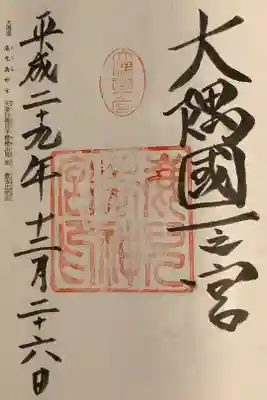 大隅國一之宮
鹿兒島神宮印
平成二十九年十二月二十六日
鹿兒島神宮